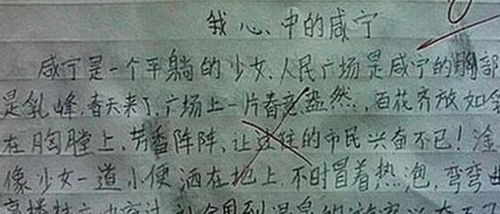 我心中的咸宁
咸宁是一个平躺的少女、人民广场是咸宁的胸部
是乳峰，春天来了，广场上一片春意盎然，百花齐放如
在胸膛上，芳香阵阵、让过往的市民兴奋不已！淦
像少女一道小便洒在地上，不时冒着热泡，弯弯曲